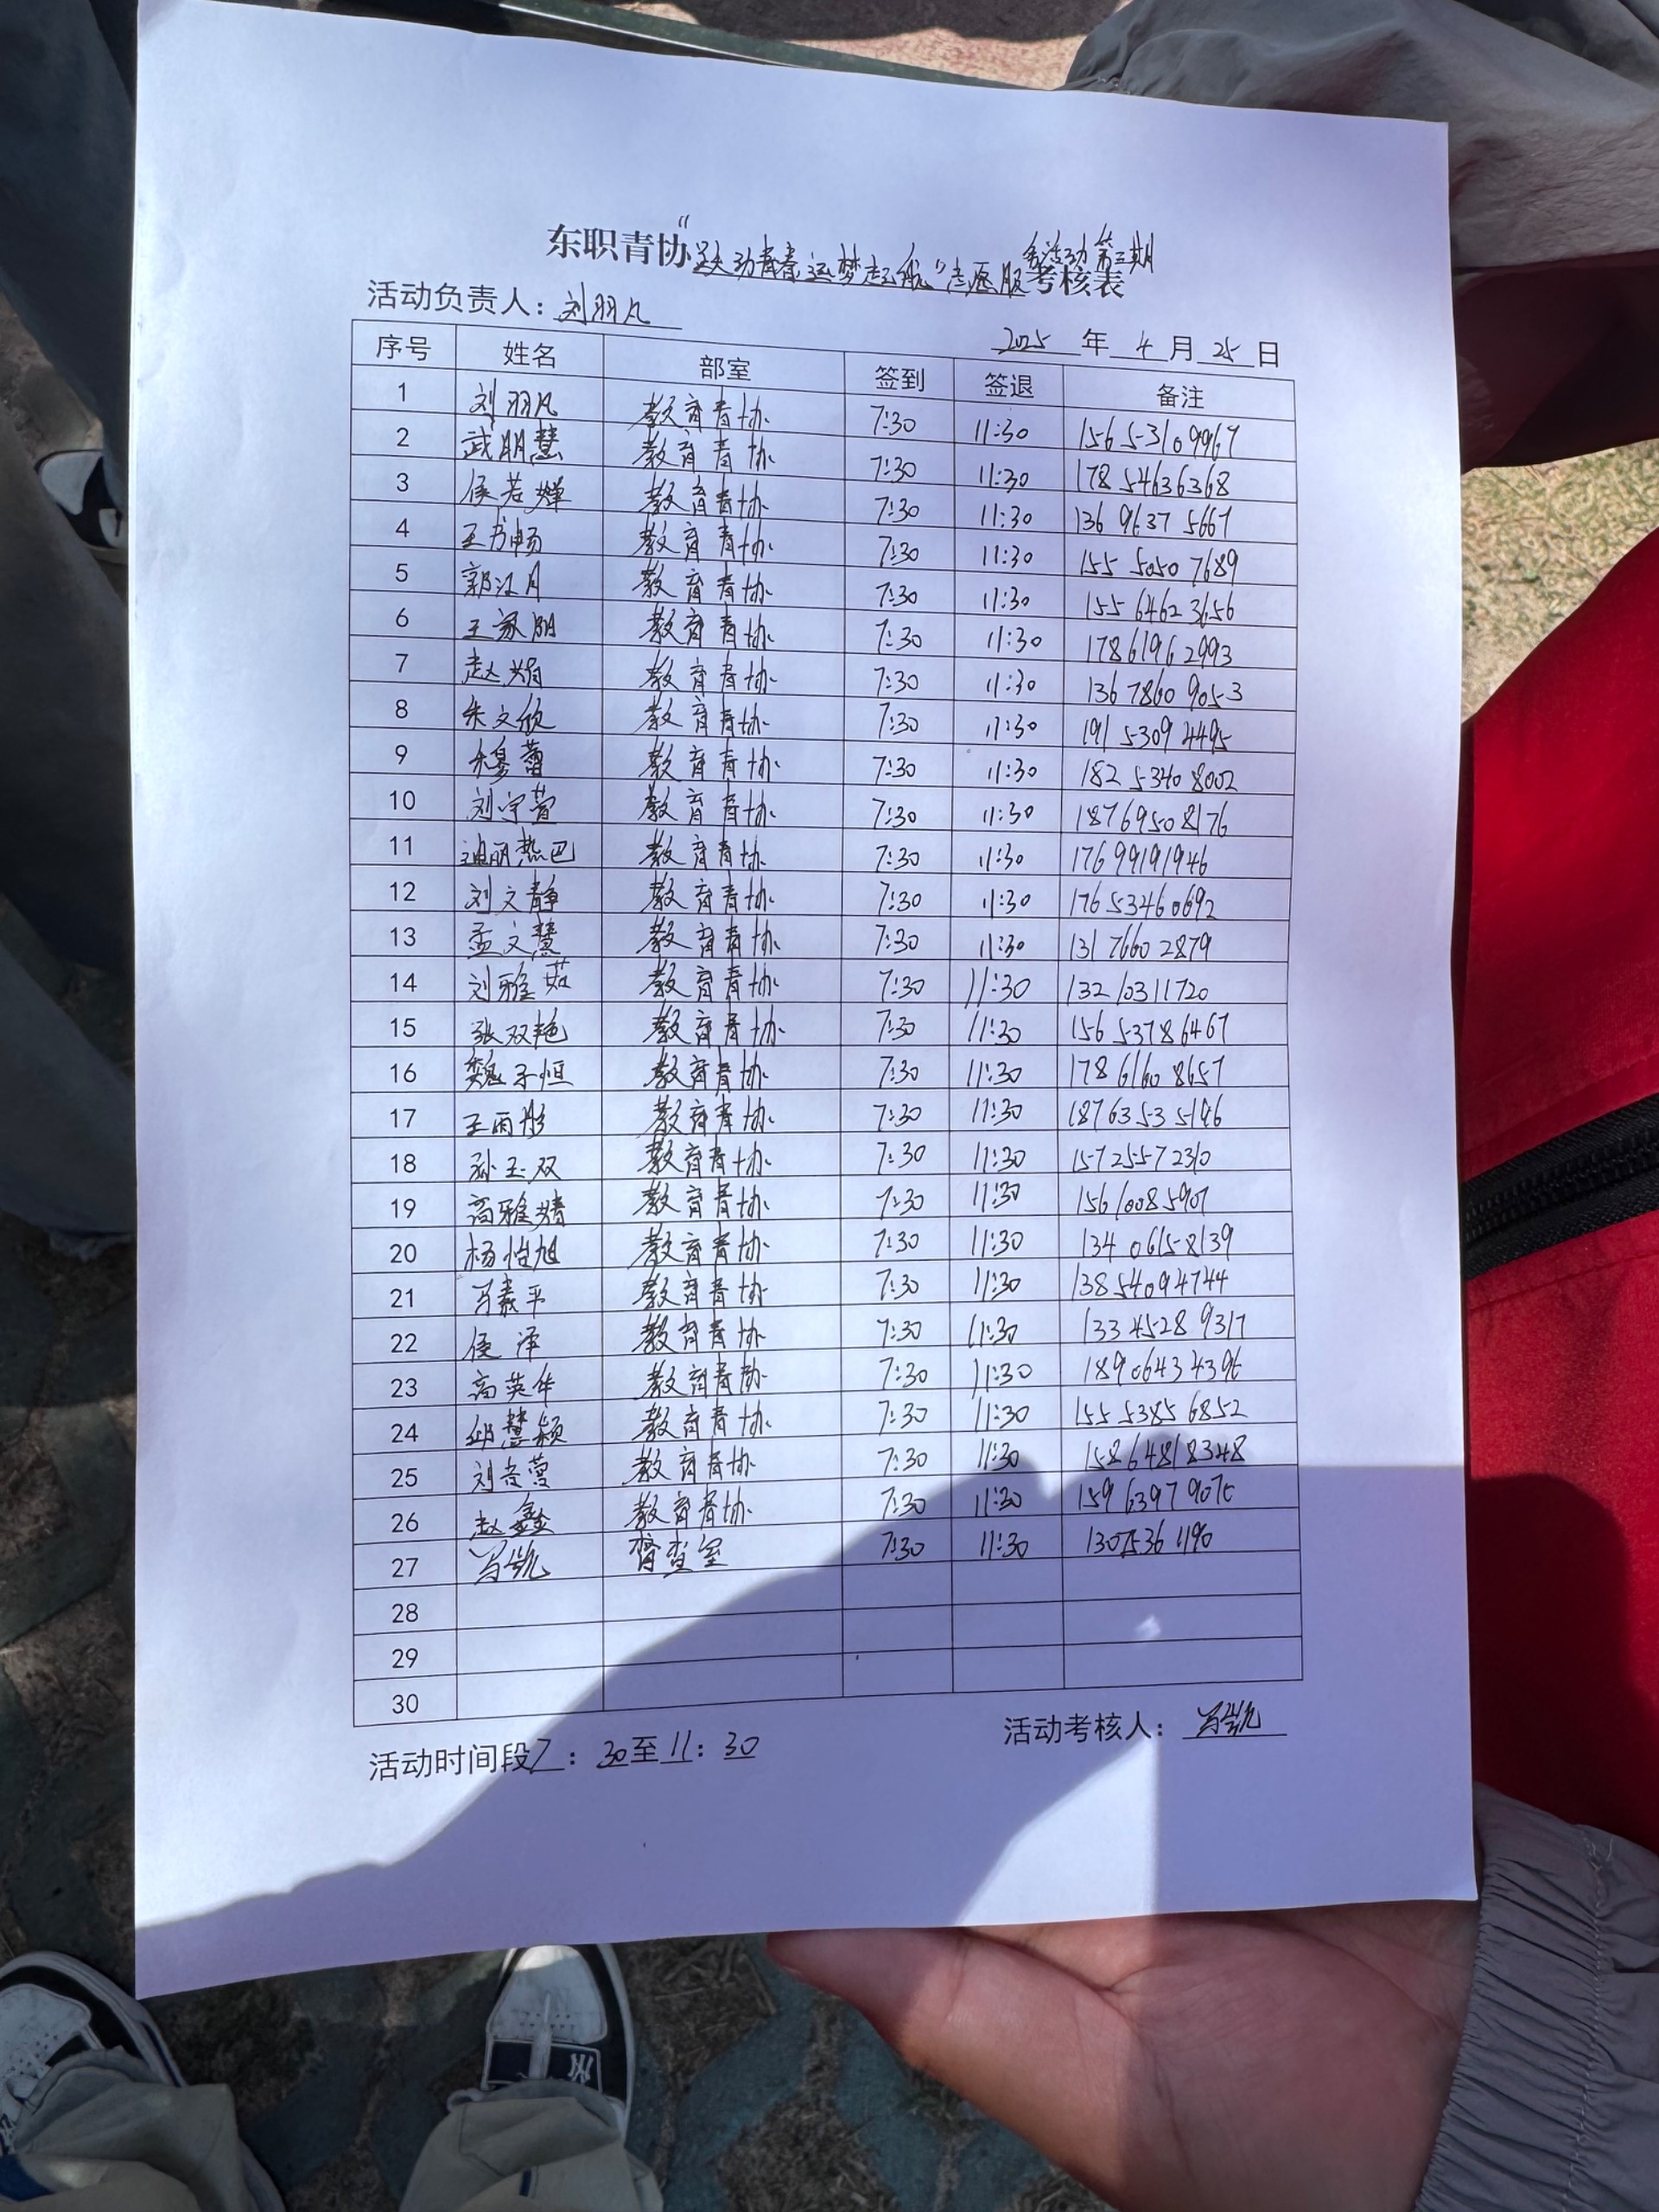 东职青协“跃动青春 运梦起航”志愿服务活动 第三期考核表
活动负责人：刘羽凡
2025 年 4 月 25 日
序号 姓名 部室 签到 签退 备注
1 刘羽凡 教育青协 7:30 11:30 15653109967
2 武明慧 教育青协 7:30 11:30 17854636368
3 侯若婵 教育青协 7:30 11:30 136 9637 5667
4 王书畅 教育青协 7:30 11:30 155 5050 7689
5 郭江月 教育青协 7:30 11:30 155 6462 3656
6 王家朋 教育青协 7:30 11:30 17861962993
7 赵娟 教育青协 7:30 11:30 136 7860 9053
8 朱文欣 教育青协 7:30 11:30 191 5309 4495
9 教育青协 7:30 11:30 182 5340 8002
10 刘宇萱 教育青协 7:30 11:30 18769508176
11 迪丽热巴 教育青协 7:30 11:30 17699191946
12 刘文静 教育青协 7:30 11:30 17653460692
13 孟文慧 教育青协 7:30 11:30 131 7660 2879
14 刘雅茹 教育青协 7:30 11:30 13210311720
15 张双艳 教育青协 7:30 11:30 15653786467
16 魏子恒 教育青协 7:30 11:30 178 6160 8657
17 王雨彤 教育青协 7:30 11:30 18763535196
18 孙玉双 教育青协 7:30 11:30 15725572310
19 高雅婧 教育青协 7:30 11:30 15610085907
20 杨怡旭 教育青协 7:30 11:30 134 0615 8139
21 马嘉平 教育青协 7:30 11:30 13854094744
22 侯泽 教育青协 7:30 11:30 133 4528 9317
23 高英华 教育青协 7:30 11:30 18906434396
24 邱慧颖 教育青协 7:30 11:30 155 5385 6852
25 教育青协 7:30 11:30 15864818348
26 赵鑫 教育青协 7:30 11:30 159 6397 9076
27 马凯 督查室 7:30 11:30
28
29
30
活动时间段 7：30至11：30
活动考核人：马凯